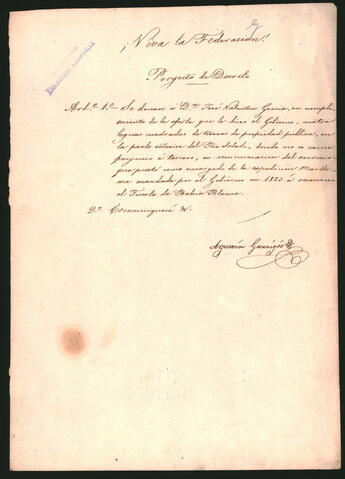 ¡Viva la Federacion!
Proyecto de Decreto
Art.º 1.º Se donan á D.n José Valentin Garcia, en cumpli-
miento de la oferta que le hizo el Gobierno, cuatro
leguas cuadradas de tierras de propiedad publica, en
la parte exterior del Rio Salado, donde no se cause
perjuicio á tercero, en remuneracion del servicio
que prestó como encargado de la espedicion Marite-
ma mandada por el Gobierno en 1823 á reconocer
el Puerto de Bahia Blanca.
2.º Comuniquese &.
Agustin Garrigós